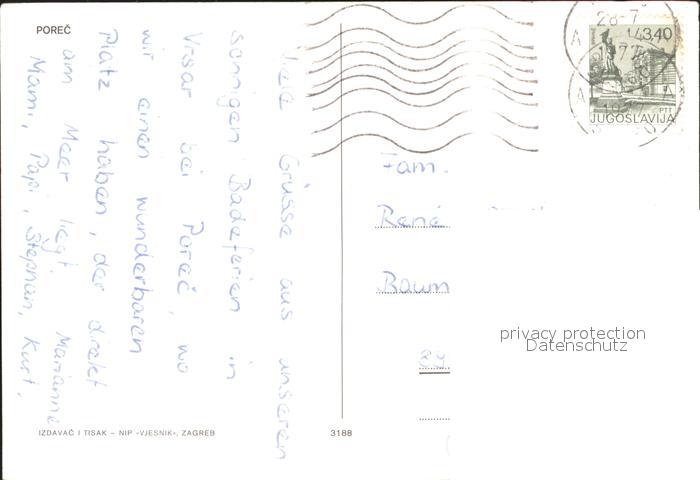 POREČ
Liebe Grüsse aus unseren
sonnigen Badeferien in
Vrsar bei Poreč, wo
wir einen wunderbaren
Platz haben, der direkt
am Meer liegt. Marianne
Mami, Papi, Stephan, Kurt,
IZDAVAČ I TISAK – NIP «VJESNIK», ZAGREB
3188
28-7
3,40
PTT
JUGOSLAVIJA
Fam.
René
Baum
privacy protection
Datenschutz